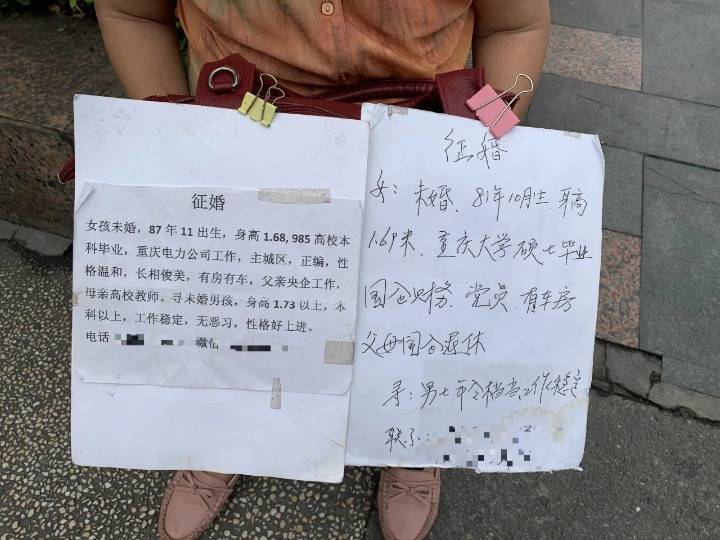 征婚
女孩未婚，87 年 11 出生，身高 1.68，985 高校本
科毕业，重庆电力公司工作，主城区，正编，性
格温和，长相俊美，有房有车，父亲央企工作，
母亲高校教师。寻未婚男孩，身高 1.73 以上，本
科以上，工作稳定，无恶习，性格好上进。
电话 微信
征婚
女：未婚、81年10月生、身高
1.69米、重庆大学硕士毕业
国企财务、党员、有车房
父母国企退休
寻：男士年令相当、工作稳定
联系：